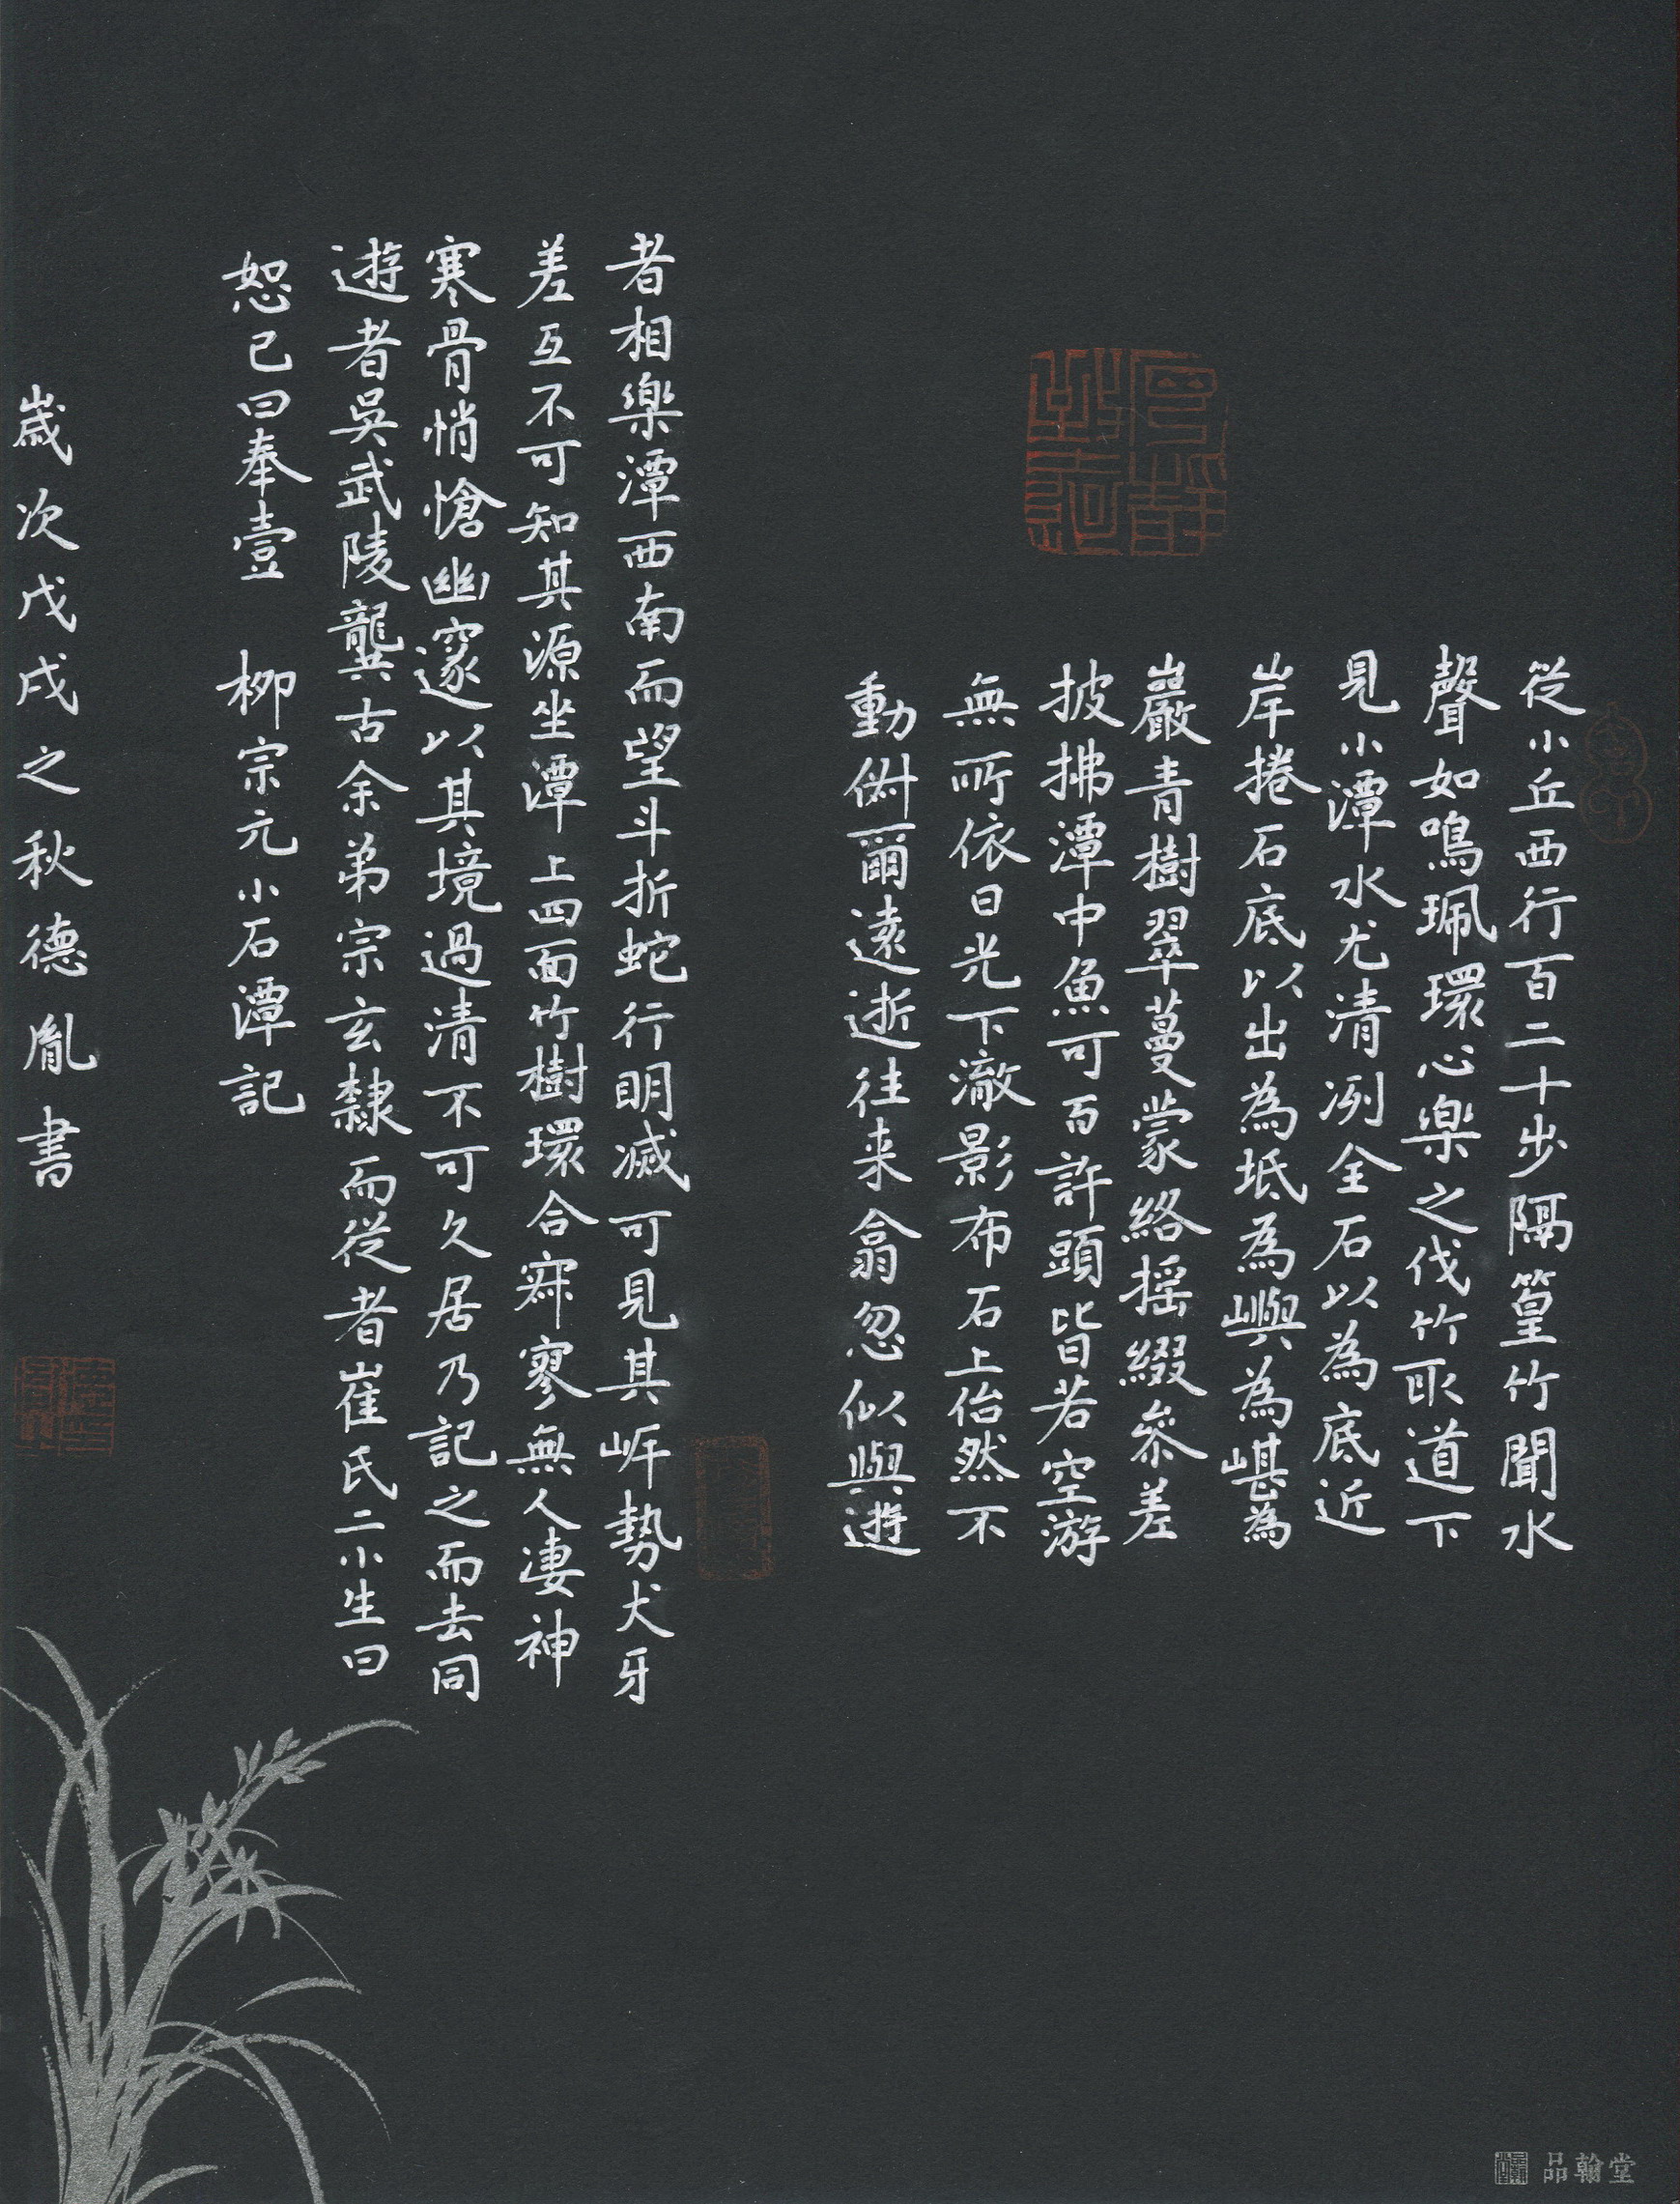 從小丘西行百二十步隔篁竹聞水
聲如鳴珮環心樂之伐竹取道下
見小潭水尤清冽全石以為底近
岸捲石底以出為坻為嶼為嵁為
巖青樹翠蔓蒙絡摇綴參差
披拂潭中魚可百許頭皆若空游
無所依日光下澈影布石上佁然不
動俶爾遠逝往来翕忽似與遊
者相樂潭西南而望斗折蛇行明滅可見其岈勢犬牙
差互不可知其源坐潭上四面竹樹環合寂寥無人凄神
寒骨悄愴幽邃以其境過清不可久居乃記之而去同
遊者吳武陵龔古余弟宗玄隸而從者崔氏二小生曰
恕己曰奉壹 柳宗元小石潭記
歲次戊戌之秋德胤書
品翰堂